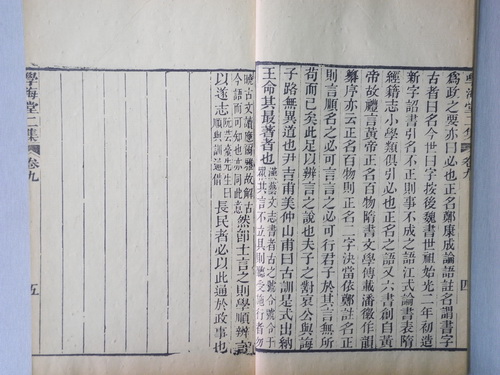 學海堂二集 卷九 四
爲政之要亦曰必也正名鄭康成論語註正名謂書字
古者曰名今世曰字按後魏書世祖始光二年初造
新字詔書引名不正則事不成之語江式論書表隋
經籍志小學類俱引必也正名之語又六書創自黃
帝故禮言黃帝正名百物隋書文學傳載潘徽作韻
纂序亦云正名百物則正名二字決當依鄭註名正
則言順名之必可言言之必可行君子於其言無所
苟而已矣此足以辨言之說也夫子之對哀公與誨
子路無異道也尹吉甫美仲山甫曰古訓是式出納
王命其最著者也漢藝文志書者古之號令號令于眾其言不立具則聽受施行者勿
曉古文讀應爾雅故解古今語而可知也亦同此意然卽士言之則學順辨言
以遂志阮芸臺先生曰順與訓通借長民者必以此通於政事也
學海堂二集 卷九 五